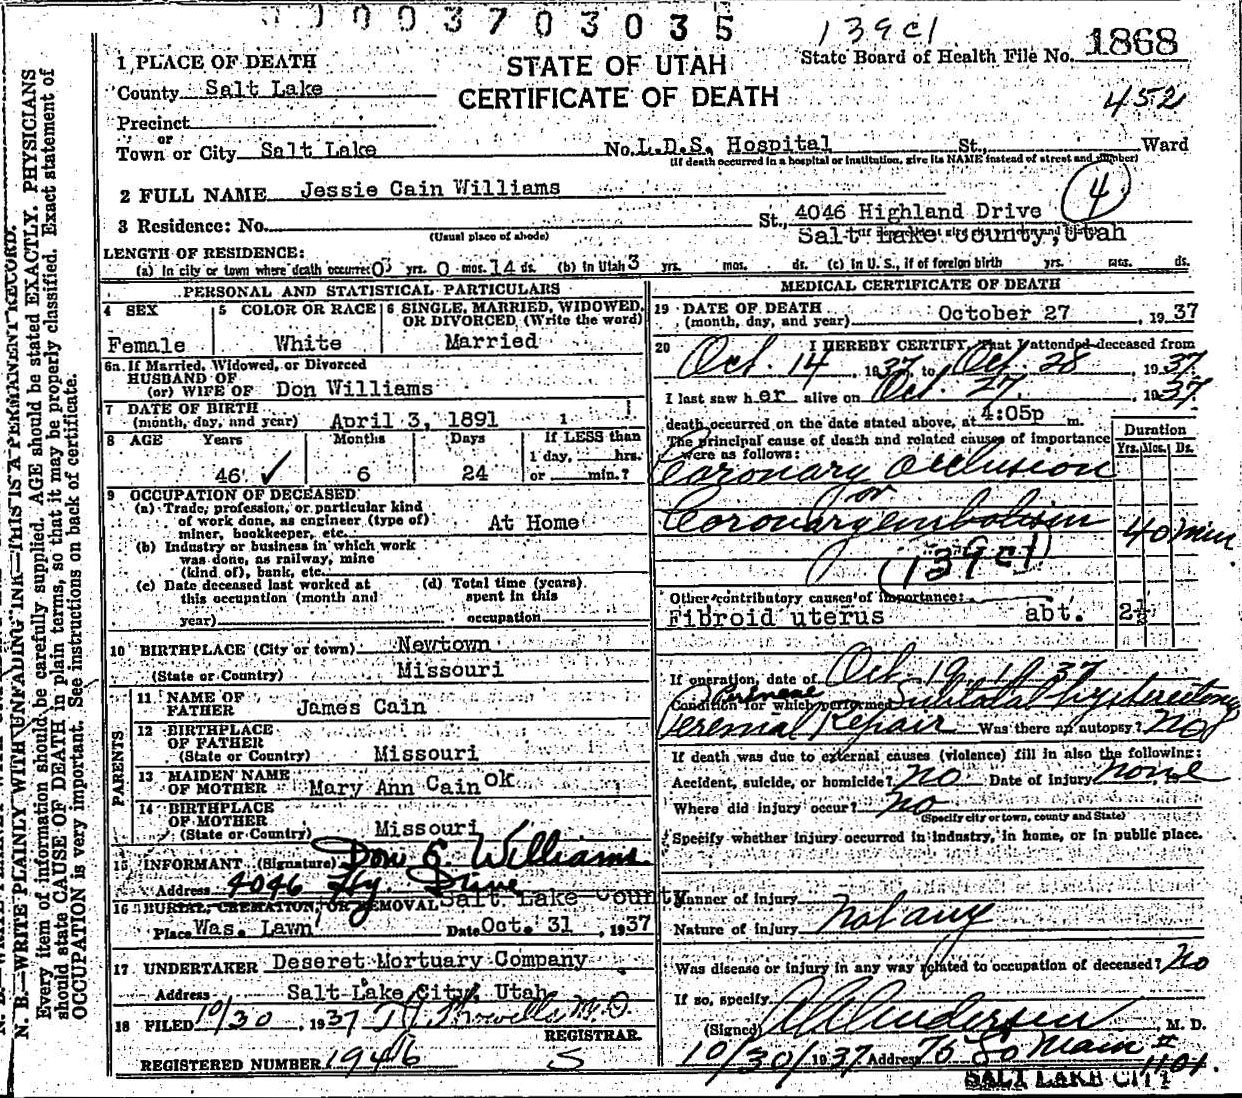 0003703035
139c1
State Board of Health File No. 1868
STATE OF UTAH
CERTIFICATE OF DEATH
452
1 PLACE OF DEATH
County Salt Lake
Precinct
or
Town or City Salt Lake No. L.D.S. Hospital St., Ward
(If death occurred in a hospital or institution, give its NAME instead of street and number)
2 FULL NAME Jessie Cain Williams
4
3 Residence: No. St., 4046 Highland Drive
(Usual place of abode)
Salt Lake County, Utah
LENGTH OF RESIDENCE:
(a) In city or town where death occurred 03 yrs. 0 mos. 14 ds. (b) in Utah 3 yrs. mos. ds. (c) in U. S., if of foreign birth yrs. mos. ds.
PERSONAL AND STATISTICAL PARTICULARS
4 SEX
Female
5 COLOR OR RACE
White
6 SINGLE, MARRIED, WIDOWED, OR DIVORCED (Write the word)
Married
6a. If Married, Widowed, or Divorced
HUSBAND OF
(or) WIFE OF Don Williams
7 DATE OF BIRTH
(month, day, and year) April 3, 1891
8 AGE Years Months Days If LESS than
1 day, hrs.
46 6 24 or min.?
9 OCCUPATION OF DECEASED
(a) Trade, profession, or particular kind
of work done, as engineer (type of)
miner, bookkeeper, etc. At Home
(b) Industry or business in which work
was done, as railway, mine
(kind of), bank, etc.
(c) Date deceased last worked at
this occupation (month and
year)
(d) Total time (years)
spent in this
occupation
10 BIRTHPLACE (City or town) Newtown
(State or Country) Missouri
PARENTS
11 NAME OF
FATHER James Cain
12 BIRTHPLACE
OF FATHER
(State or Country) Missouri
13 MAIDEN NAME
OF MOTHER Mary Ann Cain ok
14 BIRTHPLACE
OF MOTHER
(State or Country) Missouri
15 INFORMANT (Signature) Don G. Williams
Address 4046 Hy. Drive
Salt Lake County
16 BURIAL, CREMATION, OR REMOVAL
Place Was. Lawn Date Oct. 31, 1937
17 UNDERTAKER Deseret Mortuary Company
Address Salt Lake City, Utah
18 FILED 10/30, 1937 M.D.
REGISTRAR.
REGISTERED NUMBER 1946 S
MEDICAL CERTIFICATE OF DEATH
19 DATE OF DEATH
(month, day, and year) October 27, 1937
20 I HEREBY CERTIFY, That I attended deceased from
Oct. 14, 1937, to Oct. 28, 1937
I last saw her alive on Oct 27, 1937
death occurred on the date stated above, at 4:05p m.
The principal cause of death and related causes of importance
were as follows:
Duration
Yrs. Mos. Ds.
Coronary Occlusion
or
Coronary embolism 40 min
(139c1)
Other contributory causes of importance:
Fibroid uterus abt. 2½
If operation, date of Oct. 19, 1937
Condition for which performed Subtotal Hysterectomy
Perineal Repair Was there an autopsy? No
If death was due to external causes (violence) fill in also the following:
Accident, suicide, or homicide? no Date of injury none
Where did injury occur? no
(Specify city or town, county and State)
Specify whether injury occurred in industry, in home, or in public place.
Manner of injury
Nature of injury not any
Was disease or injury in any way related to occupation of deceased? No
If so, specify
(Signed) Andersen, M. D.
10/30/1937 Address 75 So Main
1101
SALT LAKE CITY
N. B.—WRITE PLAINLY WITH UNFADING INK—THIS IS A PERMANENT RECORD.
Every item of information should be carefully supplied. AGE should be stated EXACTLY. PHYSICIANS
should state CAUSE OF DEATH in plain terms, so that it may be properly classified. Exact statement of
OCCUPATION is very important. See instructions on back of certificate.